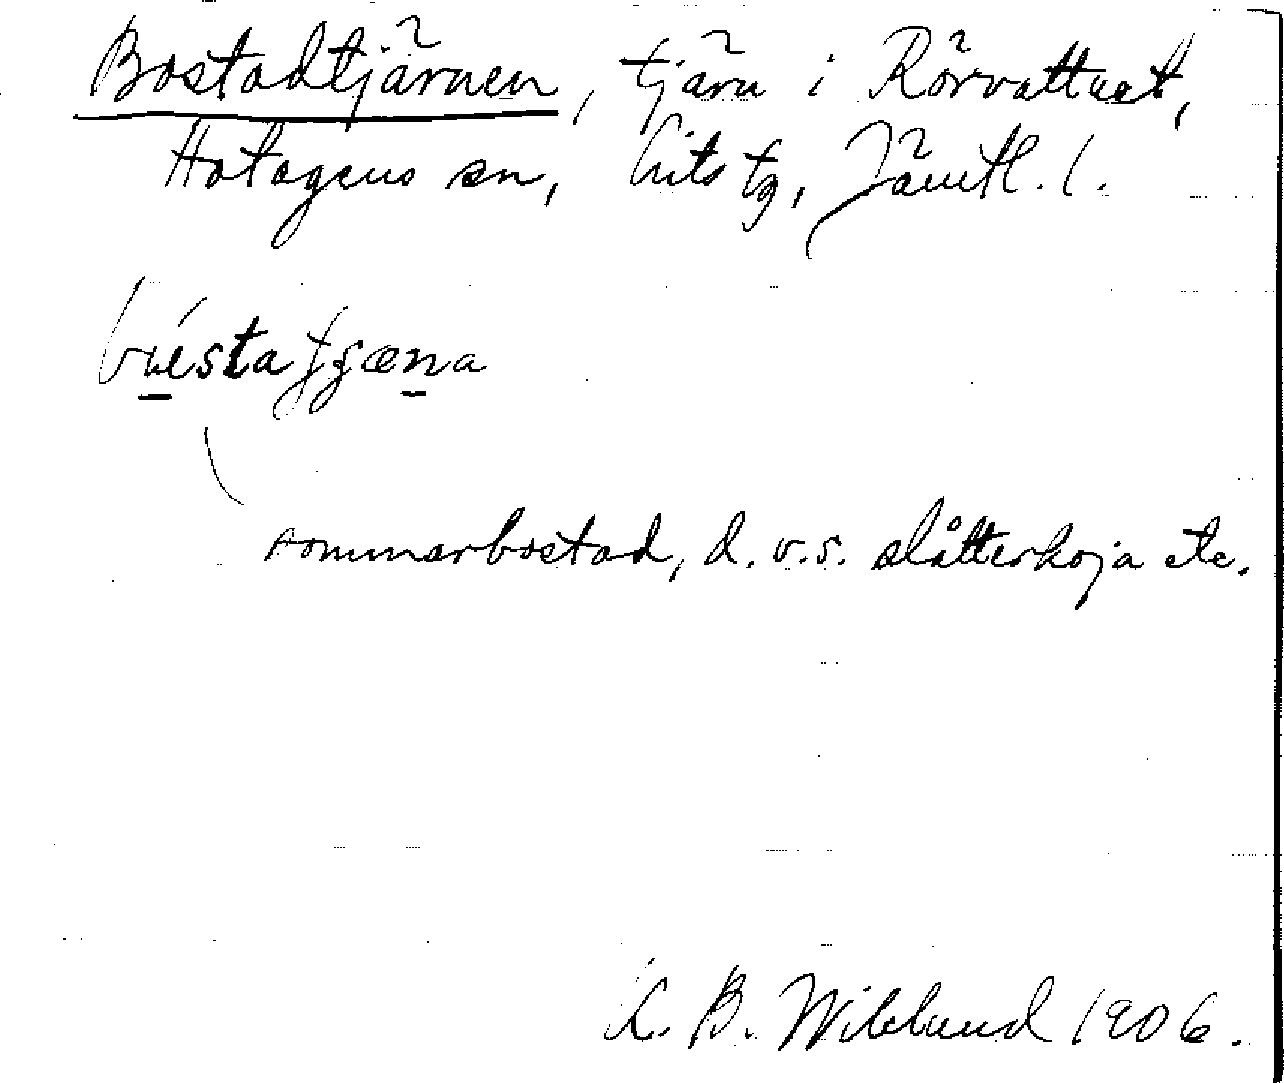 Bostadtjärnen, tjärn i Rörvattnet,
Hotagens sn, Lits tg, Jämtl. l.
sommarbostad, d.v.s. slåtterkoja etc.
K. B. Wiklund 1906.